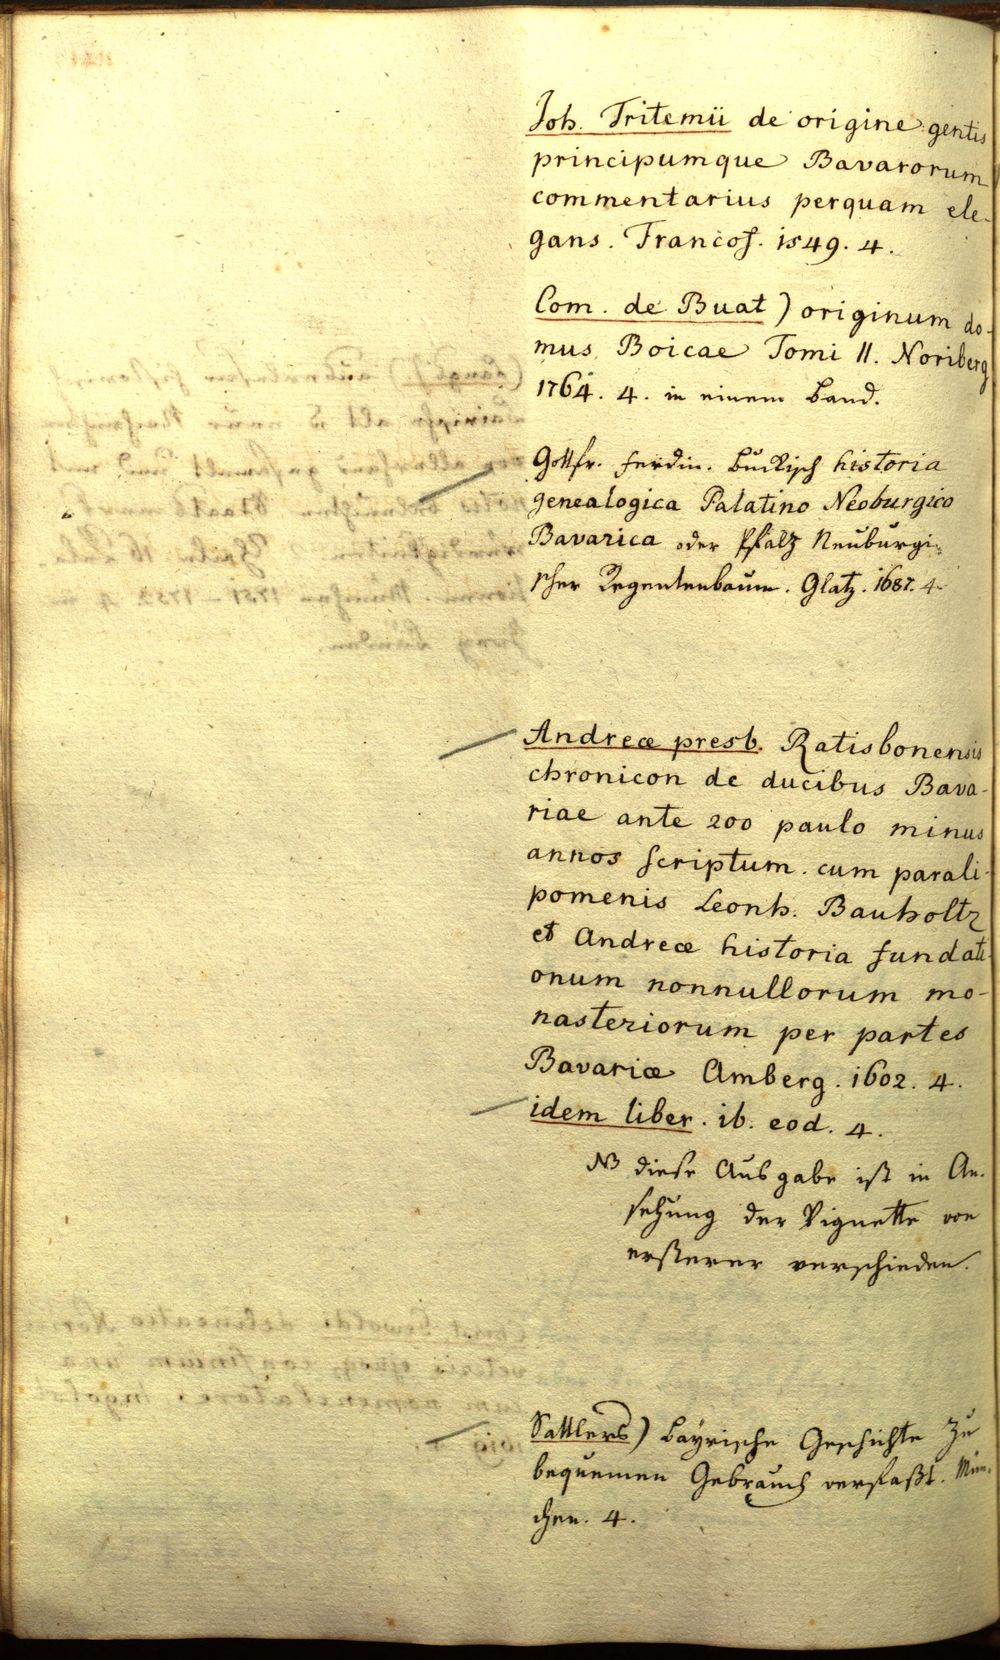 Joh. Tritemii de origine gentis
principumque Bavarorum
commentarius perquam ele-
gans. Francof. 1549. 4.
Com. de Buat) originum do-
mus Boicae Tomi II. Noriberg
1764. 4. in einem Band.
Gottfr. Ferdin. Buckisch historia
genealogica Palatino Neoburgico
Bavarica oder Pfalz Neuburgi-
scher Regentenbaum. Glatz. 1687. 4.
Andreæ presb. Ratisbonensis
chronicon de ducibus Bava-
riae ante 200 paulo minus
annos scriptum. cum parali-
pomenis Leonh. Bauholtz
et Andreæ historia fundati-
onum nonnullorum mo-
nasteriorum per partes
Bavariæ Amberg. 1602. 4.
idem liber. ib. eod. 4.
NB diese Ausgabe ist in An-
sehung der Vignette von
ersterer verschieden.
Sattlers) bayrische Geschichte zu
bequemen Gebrauch verfaßt. Mün-
chen. 4.